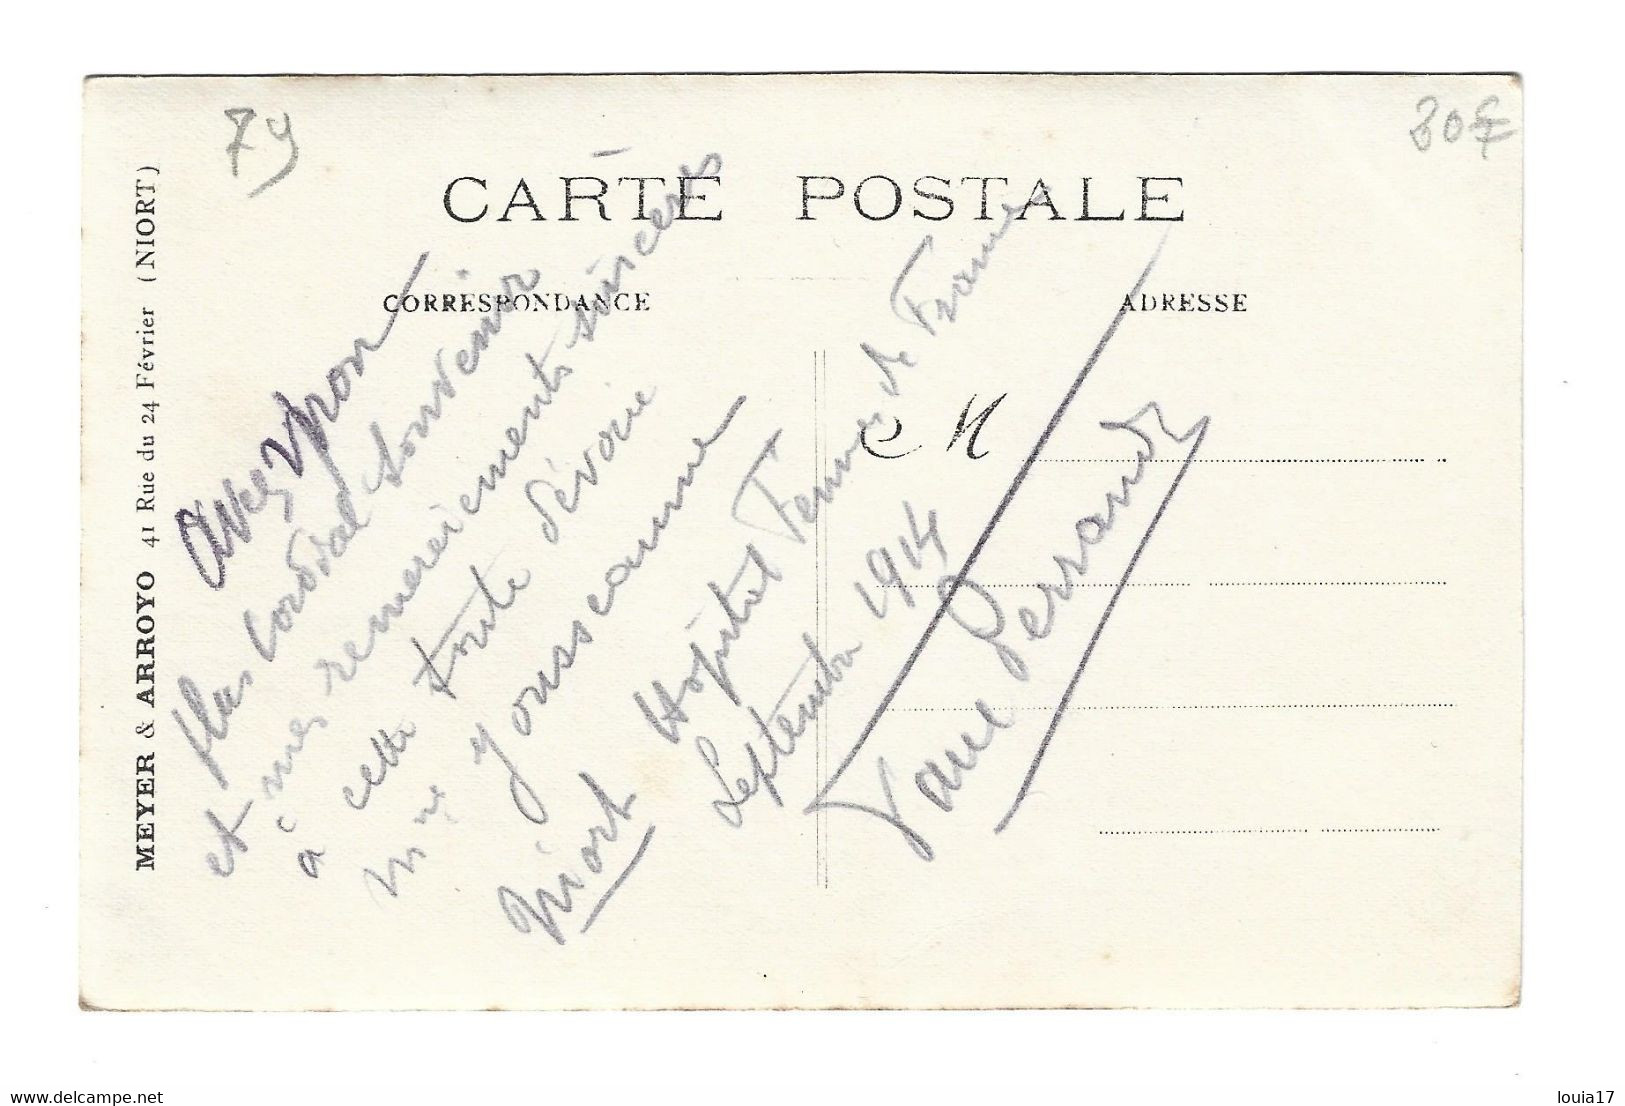 79
80€
CARTE POSTALE
CORRESPONDANCE
ADRESSE
MEYER & ARROYO 41 Rue du 24 Février (NIORT)
Avec mon
plus cordial souvenir
et mes remerciements sincères
à cette toute dévouée
Mme
Niort Hôpital Femmes de France
Septembre 1914